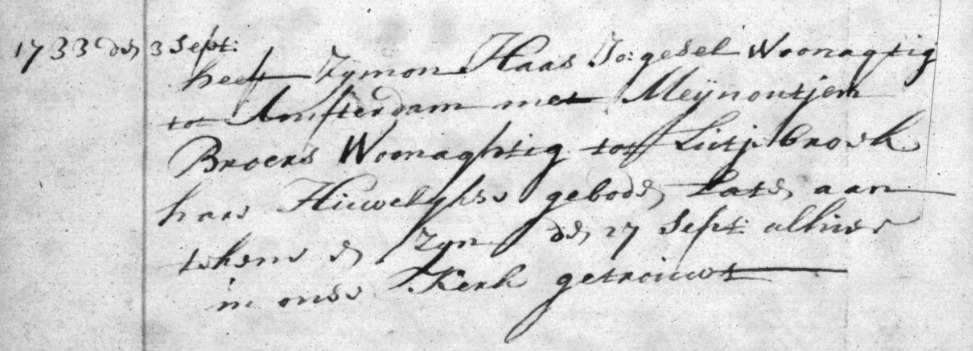 1733 den 3 Sept:
heeft Zymon Haas Jo: gesel Woonagtig
tot Amsterdam met Meynoutjen
Broers Woonaghtig tot Lutjebroek
haar Huwelykse geboden Laten aan
tekene en Zyn den 27 Sept: alhier
in onse Kerk getrouwt